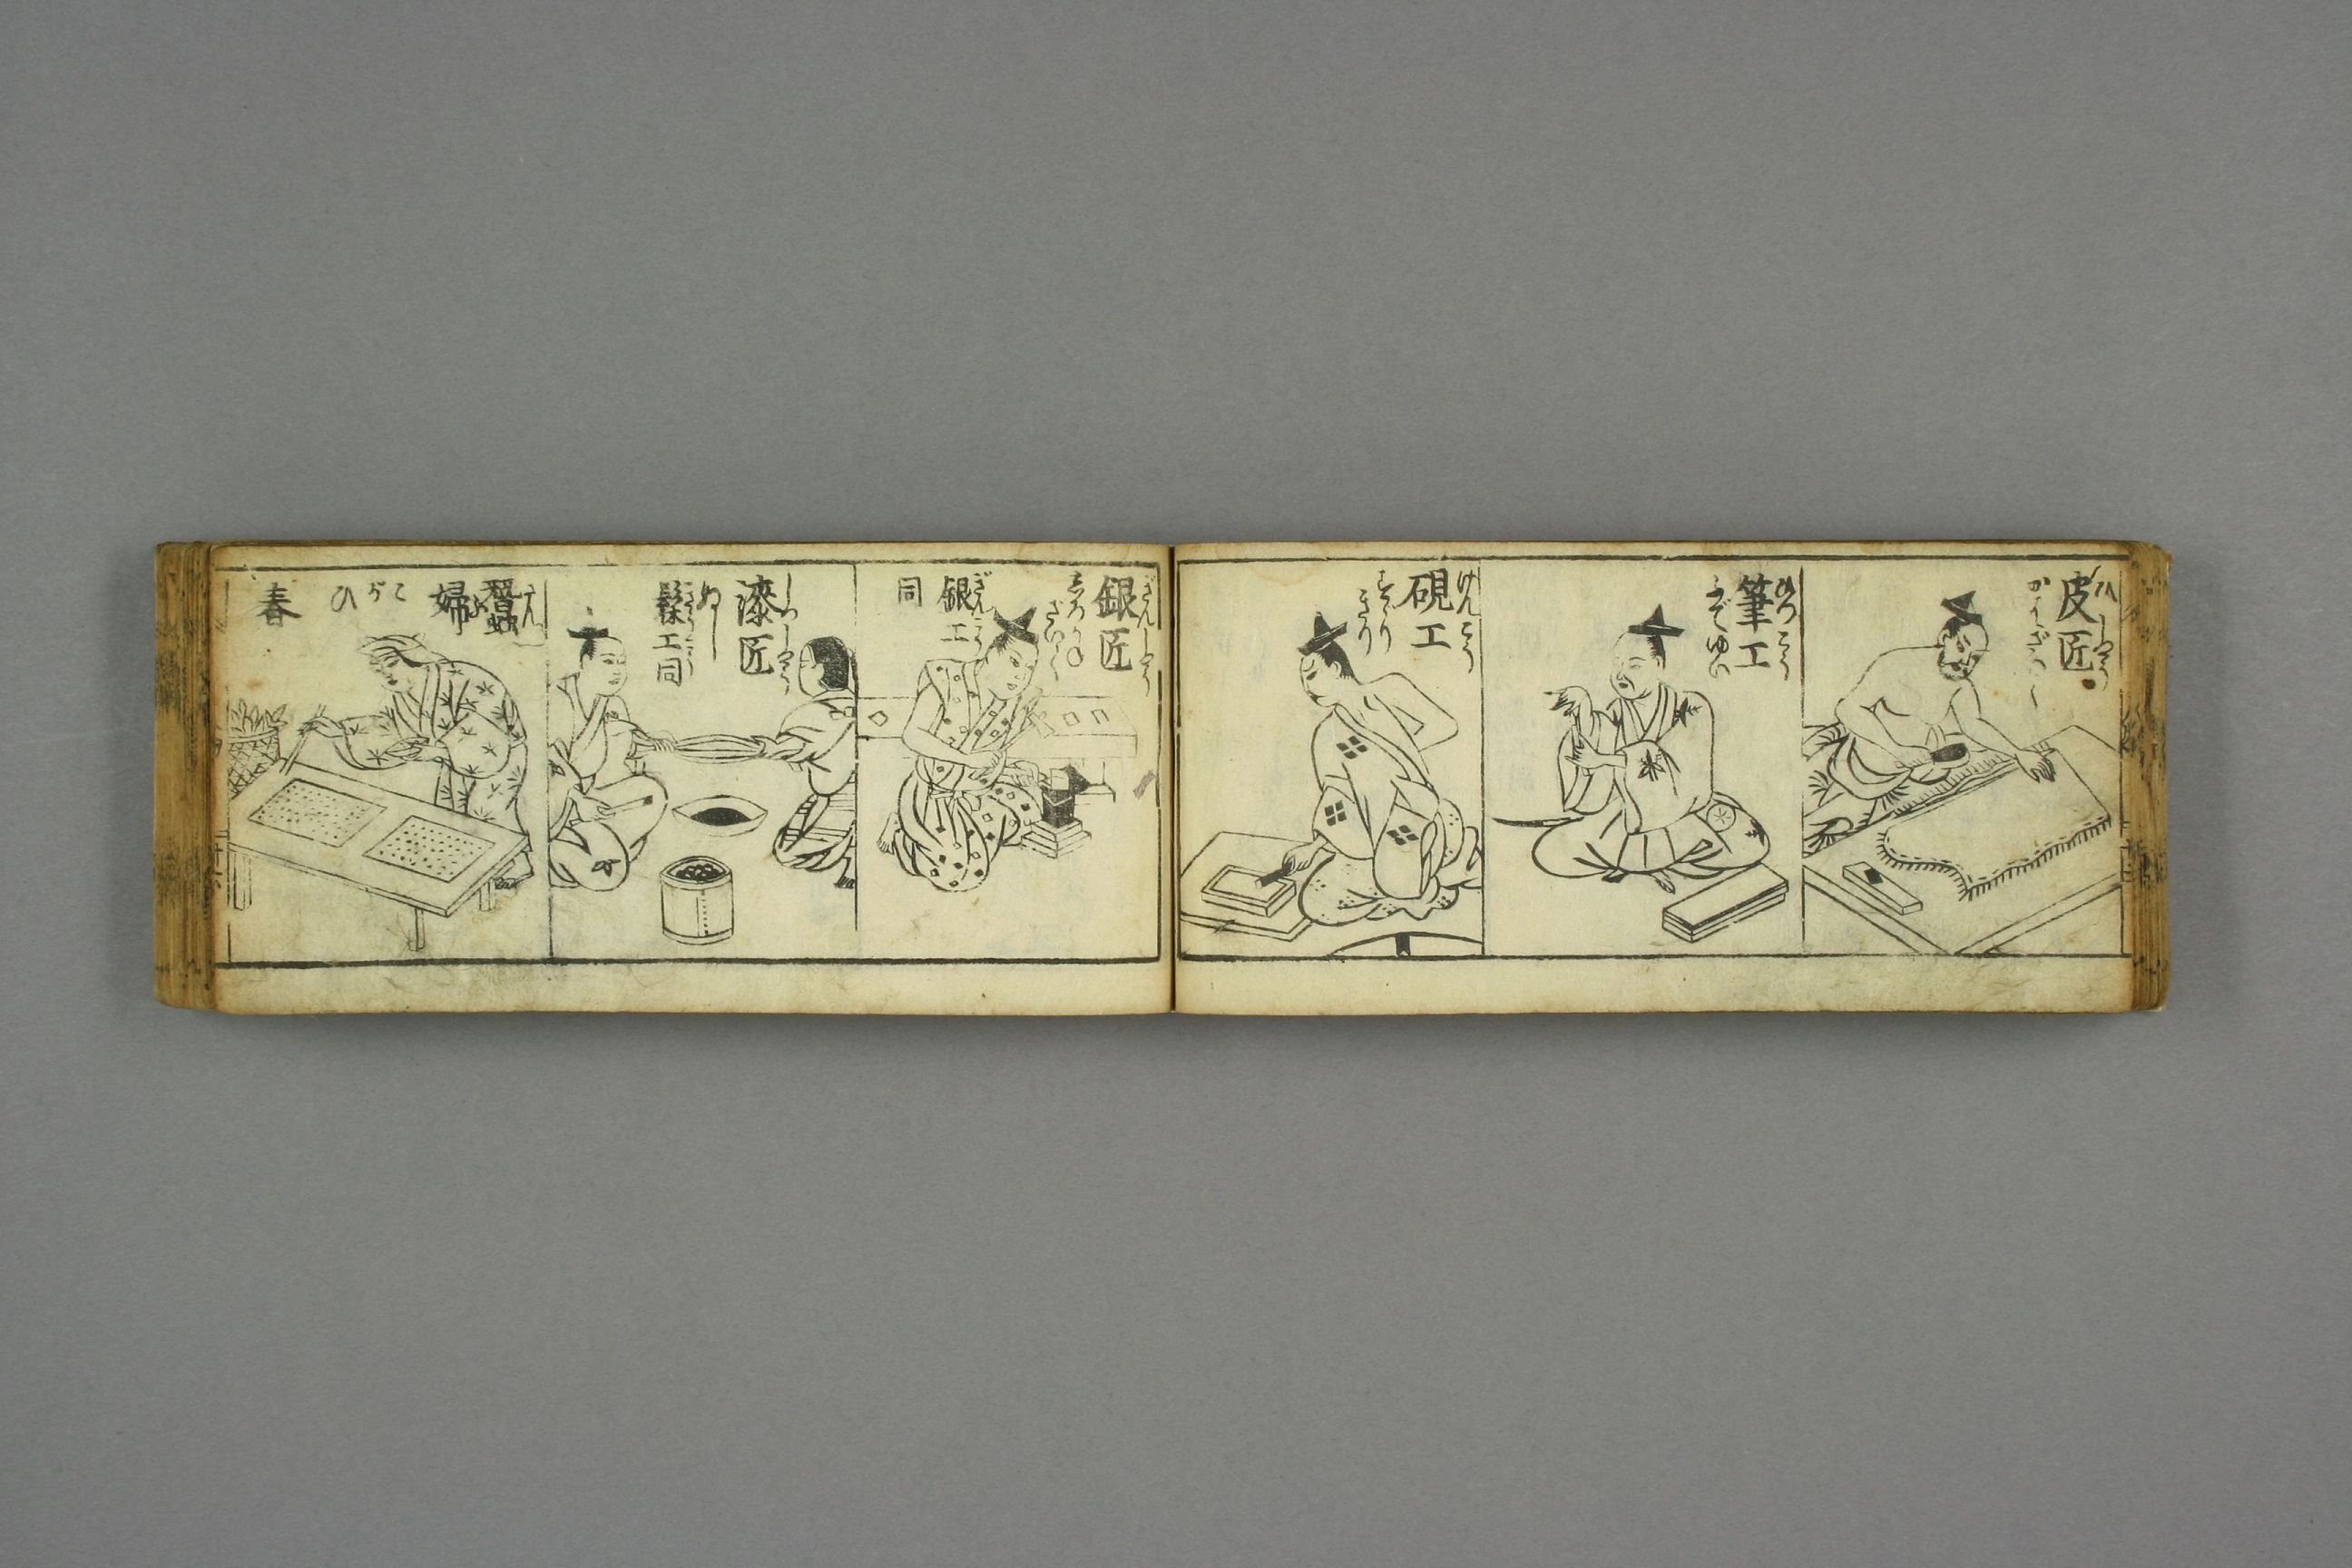 皮匠
ひしやう
かはざいく
筆工
ひつこう
ふでゆひ
硯工
けんこう
すゞり
きり
銀匠
ぎんしやう
しろかね
ざいく
銀工
ぎんこう
同
漆匠
しつしやう
ぬし
髹工同
蠶婦
さんふ
こがひ
春